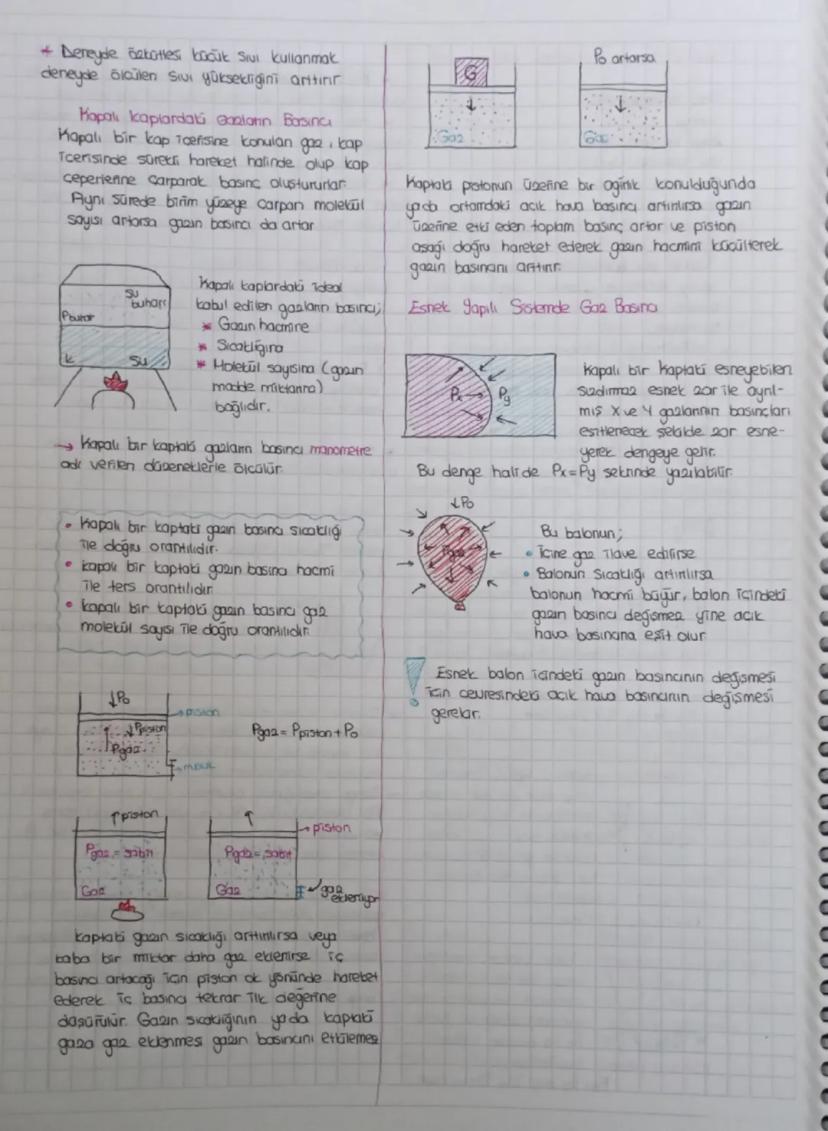 * Deneyde özkütlesi küçük sıvı kullanmak
deneyde ölçülen sıvı yüksekliğini arttırır
Kapalı Kaplardaki Gazların Basıncı
Kapalı bir kap içerisine konulan gaz, kap
içerisinde sürekli hareket halinde olup kap
çeperlerine çarparak basınç oluştururlar.
Aynı sürede birim yüzeye çarpan molekül
sayısı artarsa gazın basıncı da artar
su
buharı
Pbuhar
Su
Kapalı kaplardaki ideal
kabul edilen gazların basıncı;
* Gazın hacmine
* Sıcaklığına
* Molekül sayısına (gazın
madde miktarına)
bağlıdır.
→ Kapalı bir kaptaki gazların basıncı manometre
adı verilen düzeneklerle ölçülür.
• Kapalı bir kaptaki gazın basıncı sıcaklığı
ile doğru orantılıdır.
• kapalı bir kaptaki gazın basıncı hacmi
ile ters orantılıdır
• kapalı bir kaptaki gazın basıncı gaz
molekül sayısı ile doğru orantılıdır.
↓Po
piston
↓Ppiston
Pgaz
musluk
Pgaz = Ppiston + Po
↑piston
Pgaz = sabit
Gaz
↑
piston
Pgaz = sabit
Gaz
gaz
ekleniyor
Kaptaki gazın sıcaklığı arttırılırsa veya
kaba bir miktar daha gaz eklenirse iç
basıncı artacağı için piston ok yönünde hareket
ederek iç basıncı tekrar ilk değerine
düşürülür. Gazın sıcaklığının yada kaptaki
gaza gaz eklenmesi gazın basıncını etkilemez
G
Gaz
Po artarsa
Gaz
Kaptaki pistonun üzerine bir ağırlık konulduğunda
yada ortamdaki açık hava basıncı artırılırsa gazın
üzerine etki eden toplam basınç artar ve piston
aşağı doğru hareket ederek gazın hacmini küçülterek
gazın basıncını arttırır.
Esnek Yapılı Sistemde Gaz Basıncı
Px
Py
Kapalı bir kaptaki esneyebilen
sızdırmaz esnek zar ile ayrıl-
mış X ve Y gazlarının basınçları
eşitlenecek şekilde zar esne-
yerek dengeye gelir.
Bu denge halide Px = Py şeklinde yazılabilir.
↓Po
Pgaz
Bu balonun;
• İçine gaz ilave edilirse
• Balonun sıcaklığı artırılırsa
balonun hacmi büyür, balon içindeki
gazın basıncı değişmez yine açık
hava basıncına eşit olur
! Esnek balon içindeki gazın basıncının değişmesi
için çevresindeki açık hava basıncının değişmesi
gerekir.